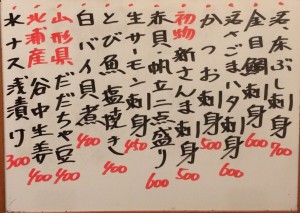 活、水ぶし刺身 700
金目鯛刺身 600
活、さごまハタ刺身 600
かつお刺身 500
初物 新さんま刺身 500
赤貝・帆立二点盛り 600
生サーモン刺身 450
とび魚塩焼き 400
白バイ貝煮 400
山形県 だだちゃ豆 400
北浦産 谷中生姜 400
水ナス浅漬り 300